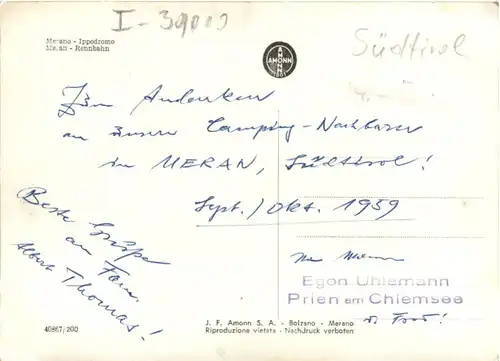 I-39009
Südtirol
Merano - Ippodromo
Meran - Rennbahn
AMONN
Zum Andenken
an unsere Camping-Nachbarn
in MERAN, Südtirol!
Sept./Okt. 1959
Beste Grüße
an Fam.
Albert Thomas!
Egon Uhlemann
Prien am Chiemsee
J. F. Amonn S. A. - Bolzano - Merano
Riproduzione vietata - Nachdruck verboten
40867/200